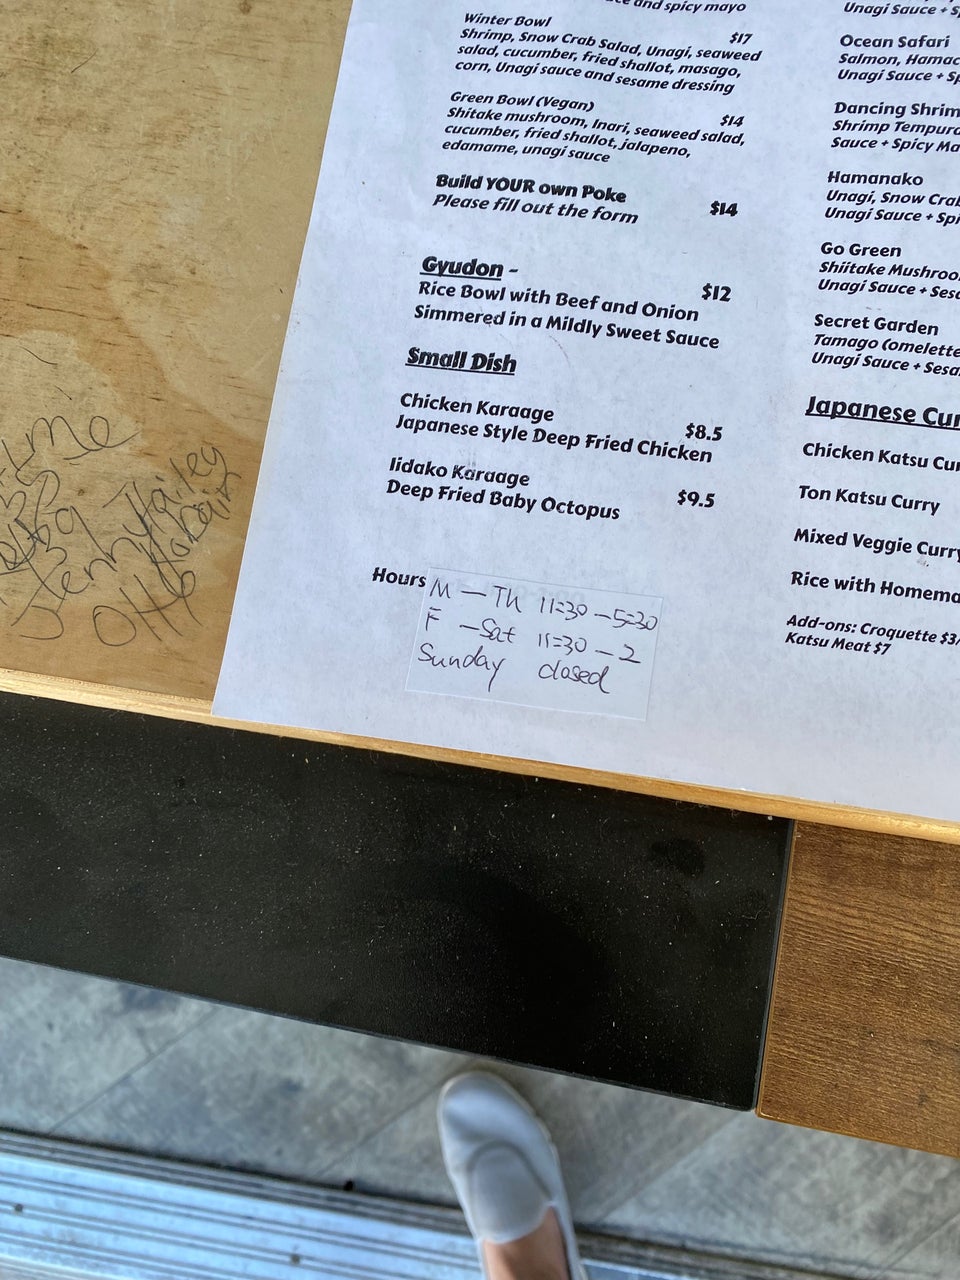 and spicy mayo
Winter Bowl $17
Shrimp, Snow Crab Salad, Unagi, seaweed
salad, cucumber, fried shallot, masago,
corn, Unagi sauce and sesame dressing
Green Bowl (Vegan) $14
Shitake mushroom, Inari, seaweed salad,
cucumber, fried shallot, jalapeno,
edamame, unagi sauce
Build YOUR own Poke $14
Please fill out the form
Gyudon -
Rice Bowl with Beef and Onion $12
Simmered in a Mildly Sweet Sauce
Small Dish
Chicken Karaage $8.5
Japanese Style Deep Fried Chicken
Iidako Karaage $9.5
Deep Fried Baby Octopus
Hours
M - Th 11:30 - 5:30
F - Sat 11:30 - 2
Sunday closed
Unagi Sauce +
Ocean Safari
Salmon,
Unagi Sauce +
Dancing
Shrimp
Sauce + Spicy
Hamanako
Unagi, Snow
Unagi Sauce +
Go Green
Shiitake
Unagi Sauce +
Secret Garden
Tamago
Unagi Sauce +
Japanese
Chicken Katsu
Ton Katsu Curry
Mixed Veggie Curry
Rice with
Add-ons: Croquette $3/
Katsu Meat $7